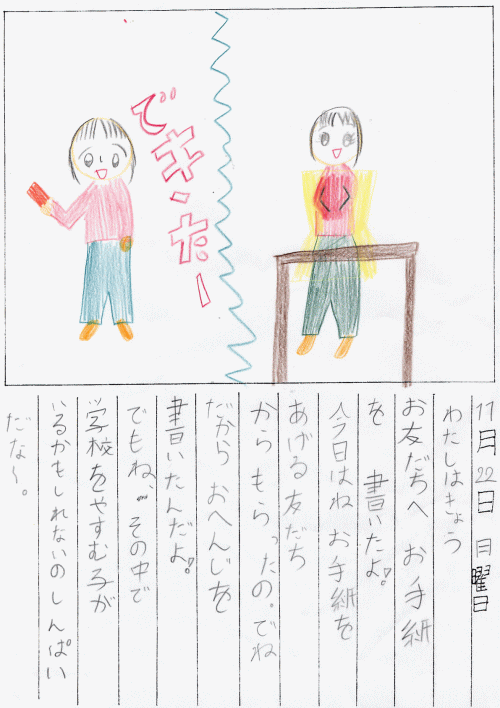 でき・たー
11月22日 日曜日
わたしはきょう
お友だちへ お手紙
を 書いたよ!
今日はね お手紙を
あげる友だち
からもらったの。でね
だから おへんじを
書いたんだよ!
でもね…その中で
学校をやすむ子が
いるかもしれないの しんぱい
だな〜。